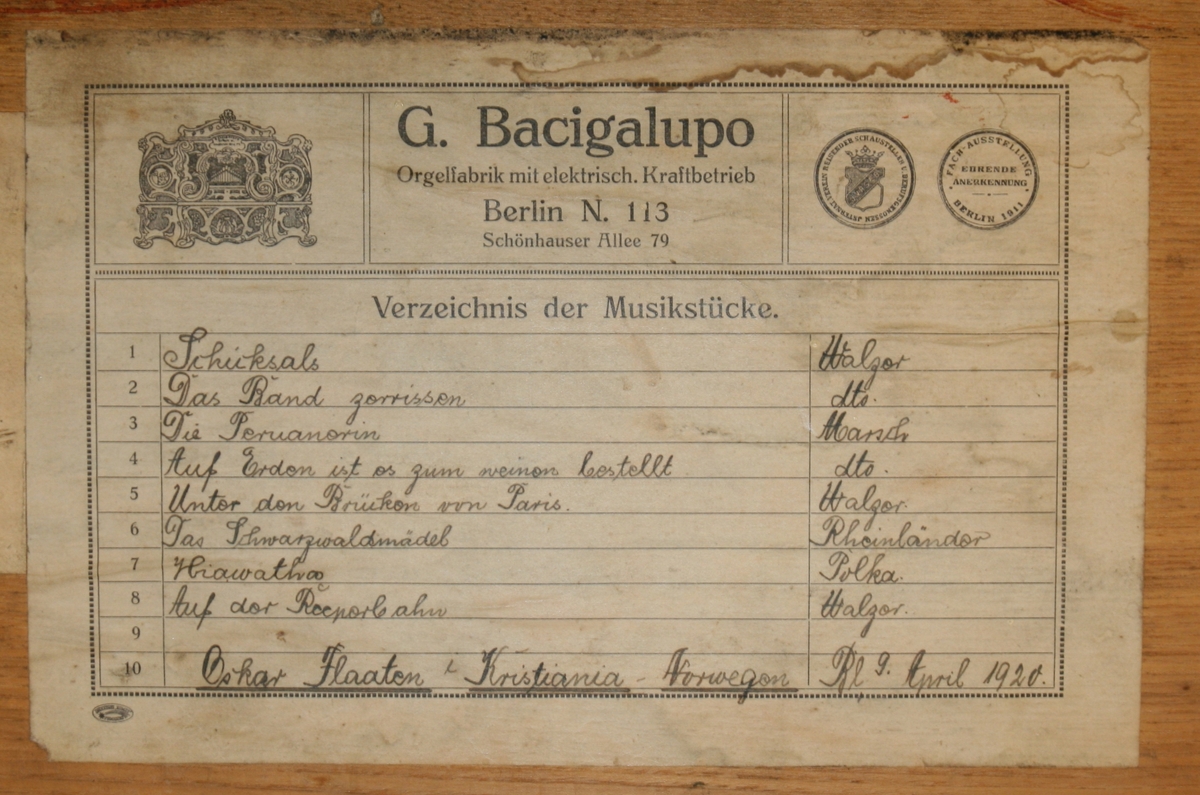 G. Bacigalupo
Orgelfabrik mit elektrisch. Kraftbetrieb
Berlin N. 113
Schönhauser Allee 79
FACH-AUSSTELLUNG
EHRENDE
ANERKENNUNG
BERLIN 1911
Verzeichnis der Musikstücke.
1 Schicksals Walzer
2 Das Band zerrissen dto.
3 Die Peruanerin Marsch
4 Auf Erden ist es zum weinen bestellt dto.
5 Unter den Brücken von Paris. Walzer
6 Das Schwarzwaldmädel Rheinländer
7 Hiawatha Polka.
8 Auf der Reeperbahn Walzer.
9
10 Oskar Flaaten i Kristiania - Norwegen Bl 9. April 1920.